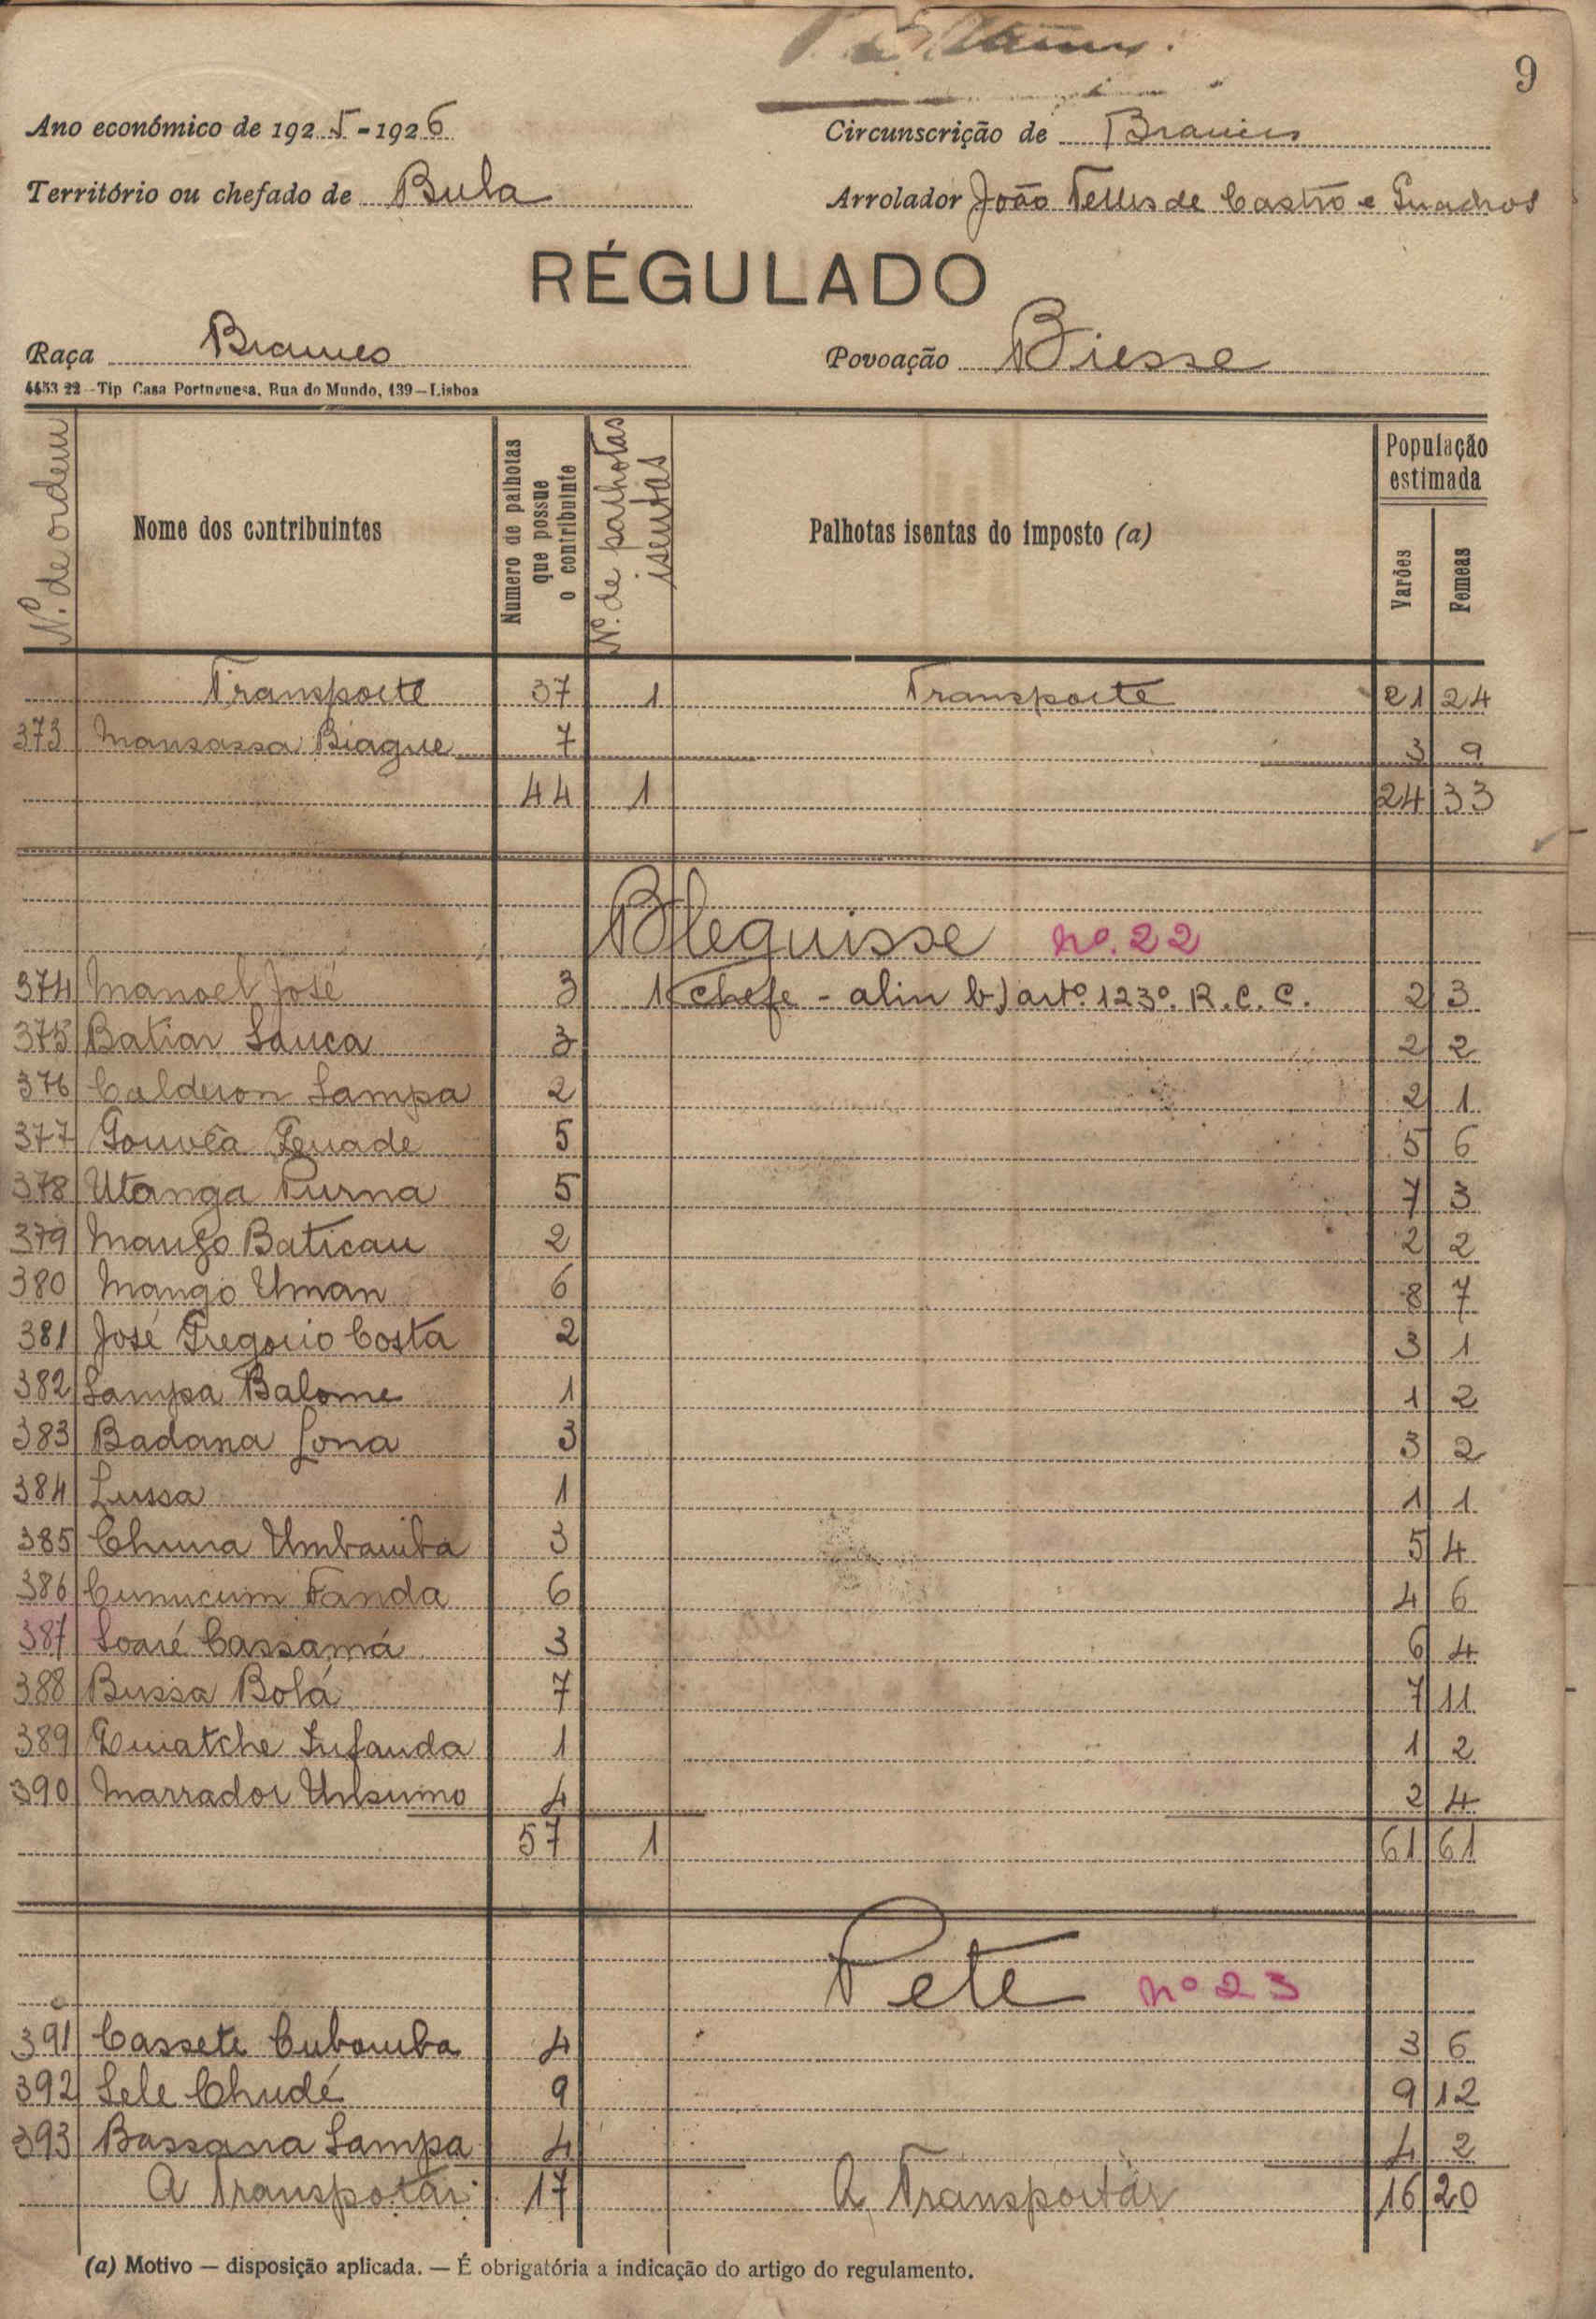 9
Ano económico de 1925-1926 Circunscrição de Brames
Território ou chefado de Bula Arrolador João Telles de Castro e Quadros
RÉGULADO
Raça Brames Povoação Biesse
4453 22-Tip Casa Portuguesa, Rua do Mundo, 139-Lisboa
Nº. de ordem Nome dos contribuintes Numero de palhotas que possue o contribuinte Nº. de palhotas isentas Palhotas isentas do imposto (a) População estimada Varões Femeas
Transporte 37 1 Transporte 21 24
373 Mansassa Biague 7 3 9
44 1 24 33
Bleguisse nº. 22
374 Manoel José 3 1 chefe - alin b) artº. 123º. R.C.C. 2 3
375 Batiar Sanca 3 2 2
376 Calderon Sampa 2 2 1
377 Gouvêa 5 5 6
378 Utanga Purna 5 7 3
379 Mango Baticau 2 2 2
380 Mango Uman 6 8 7
381 José Gregorio Costa 2 3 1
382 Sampa Balome 1 1 2
383 Badana Jona 3 3 2
384 Lussa 1 1 1
385 Chuna Umbamba 3 5 4
386 Cumucum Fanda 6 4 6
387 Soaré Cassamá 3 6 4
388 Bussa Bolá 7 7 11
389 Quiatche Infanda 1 1 2
390 Marrador Unsumo 4 2 4
57 1 61 61
Pete nº 23
391 Cassete Cubamba 4 3 6
392 Sele Chudé 9 9 12
393 Bassana Sampa 4 4 2
A Transportar 17 A Transportar 16 20
(a) Motivo — disposição aplicada. — É obrigatória a indicação do artigo do regulamento.